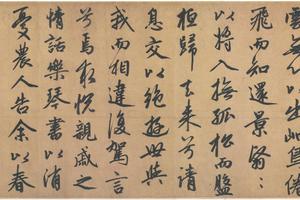 雲无心以出岫鳥倦
飛而知還景翳〻
以將入撫孤松而盤
桓歸去来兮請
息交以絶遊世與
我而相違復駕言
兮焉求悅親戚之
情話樂琴書以消
憂農人告余以春